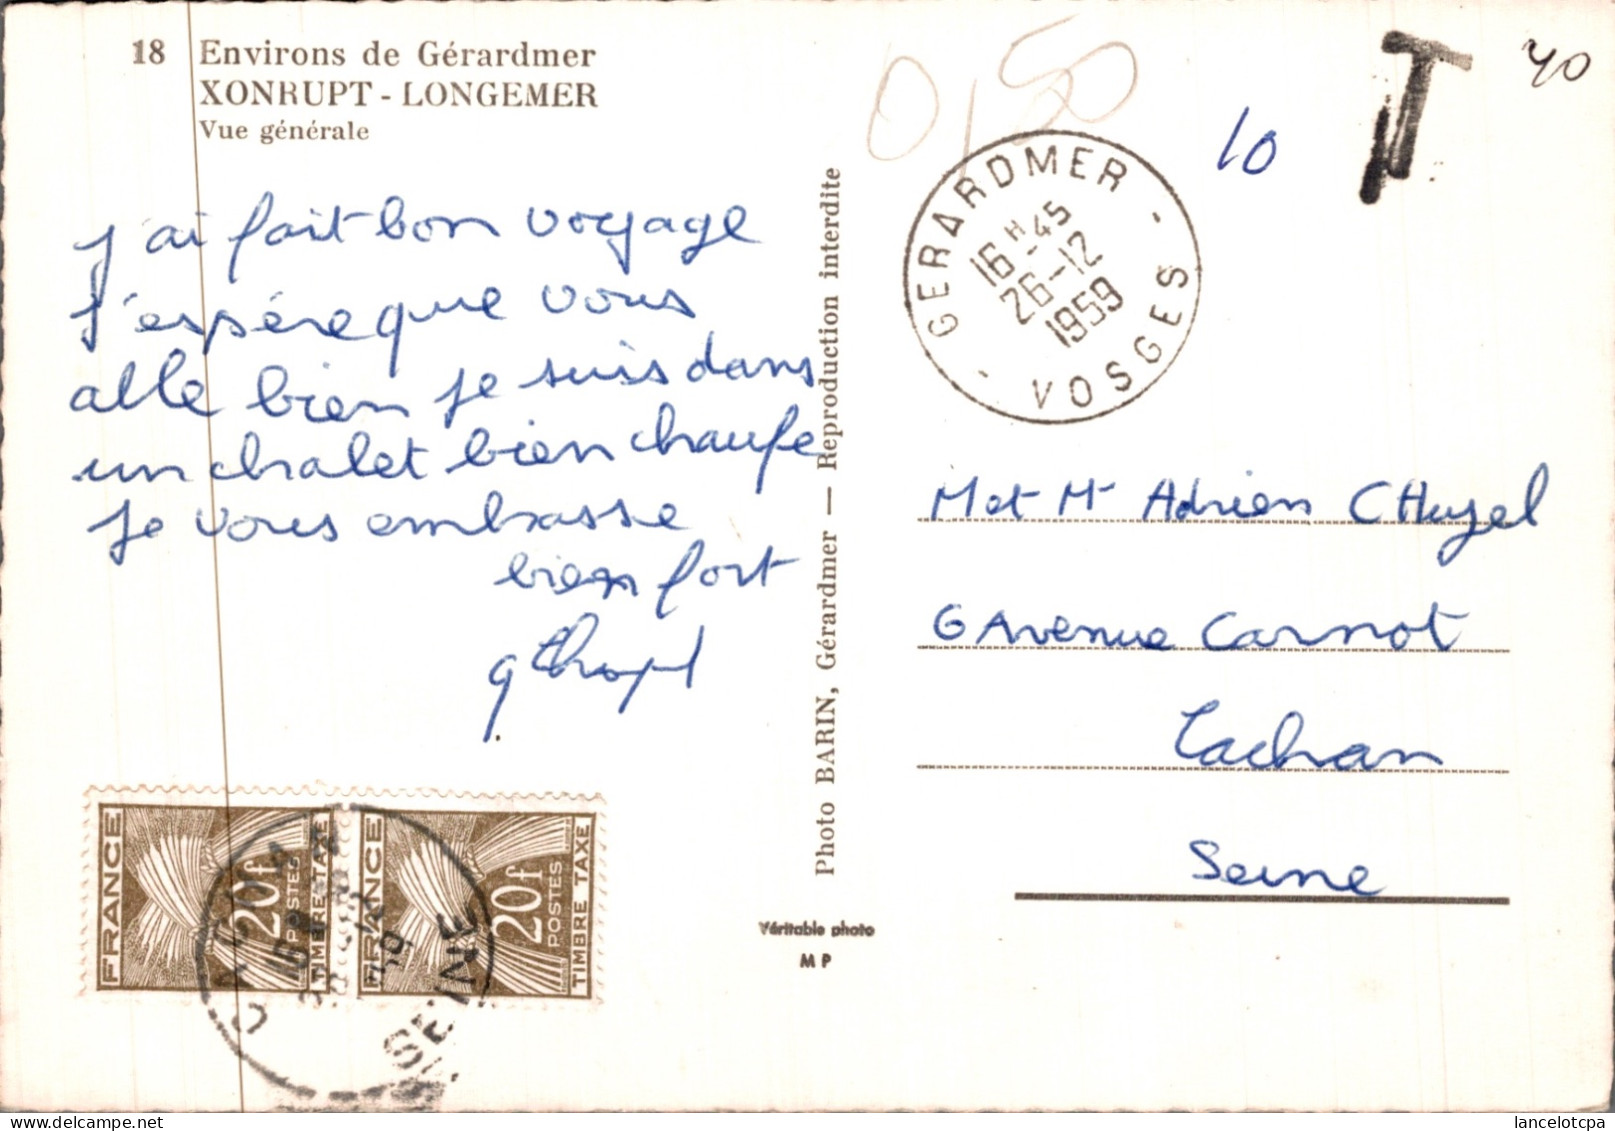 18 Environs de Gérardmer
XONRUPT - LONGEMER
Vue générale
j'ai fait bon voyage
j'espére que vous
alle bien je suis dans
un chalet bien chaufe
je vous embrasse
bien fort
Photo BARIN, Gérardmer — Reproduction interdite
Véritable photo
MP
0,50
10
T
40
GERARDMER - VOSGES -
16H45
26-12
1959
Met Mr Adrien
6 Avenue Carnot
Cachan
Seine
FRANCE
20f
POSTES
TIMBRE TAXE
FRANCE
20f
POSTES
TIMBRE TAXE
CACHAN
SEINE
lancelotcpa